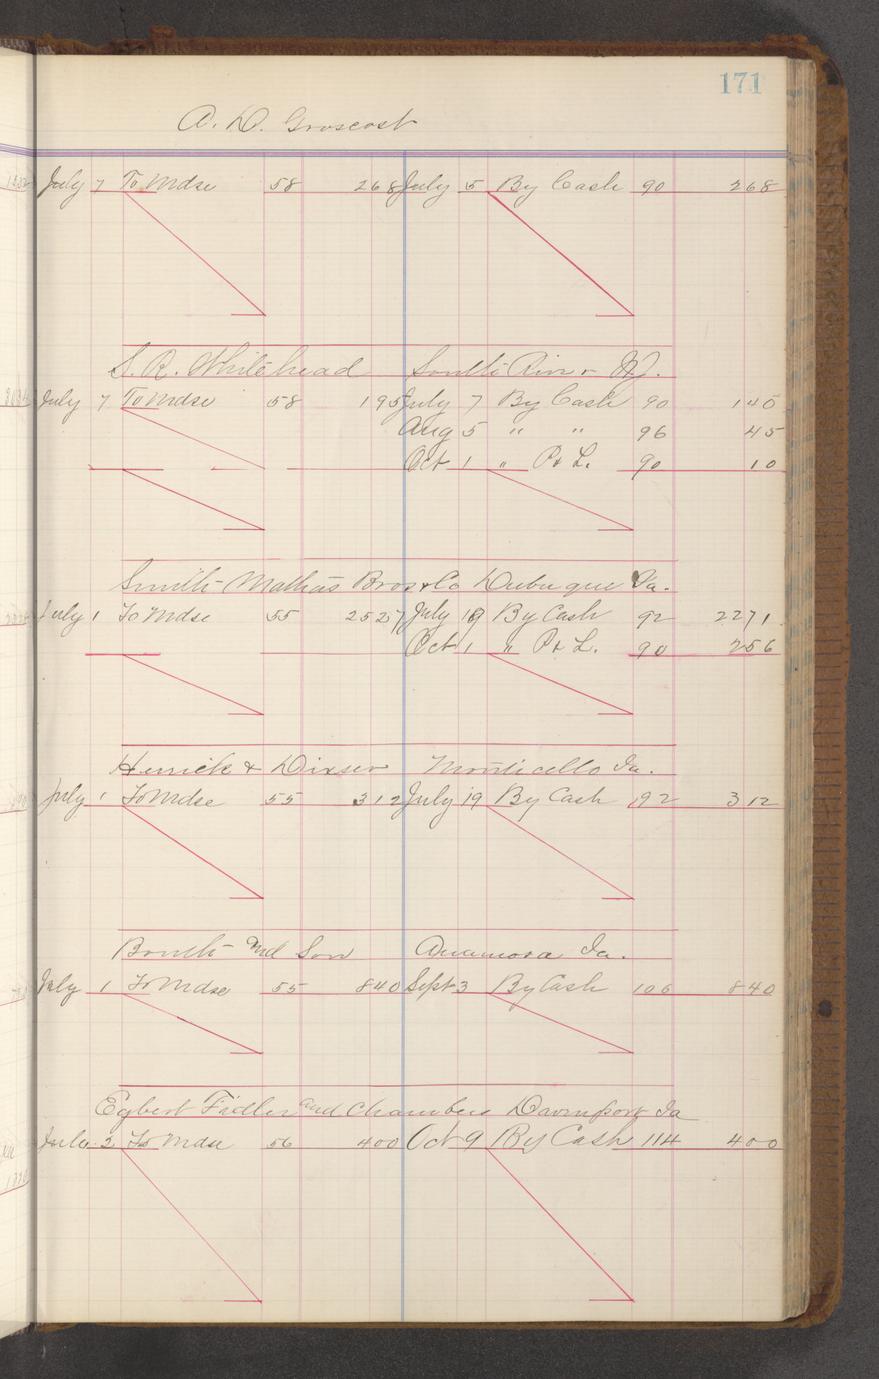 171
A. D. Groscost
July 7 To Mdse 58 268 July 5 By Cash 90 268
S. R. Whitehead South River N.J.
July 7 To Mdse 58 195 July 7 By Cash 90 140
Aug 5 " " 96 45
Oct 1 " P & L. 90 10
Smith Mathis Bros & Co Dubuque Ia.
July 1 To Mdse 55 2527 July 19 By Cash 92 2271
Oct 1 " P & L. 90 256
Herrick & Dixson Monticello Ia.
July 1 To Mdse 55 312 July 19 By Cash 92 312
Booth and Son Anamosa Ia.
July 1 To Mdse 55 840 Sept 3 By Cash 106 840
Egbert Fidler and Chambers Davenport Ia
July 2 To Mdse 56 400 Oct 9 By Cash 114 400